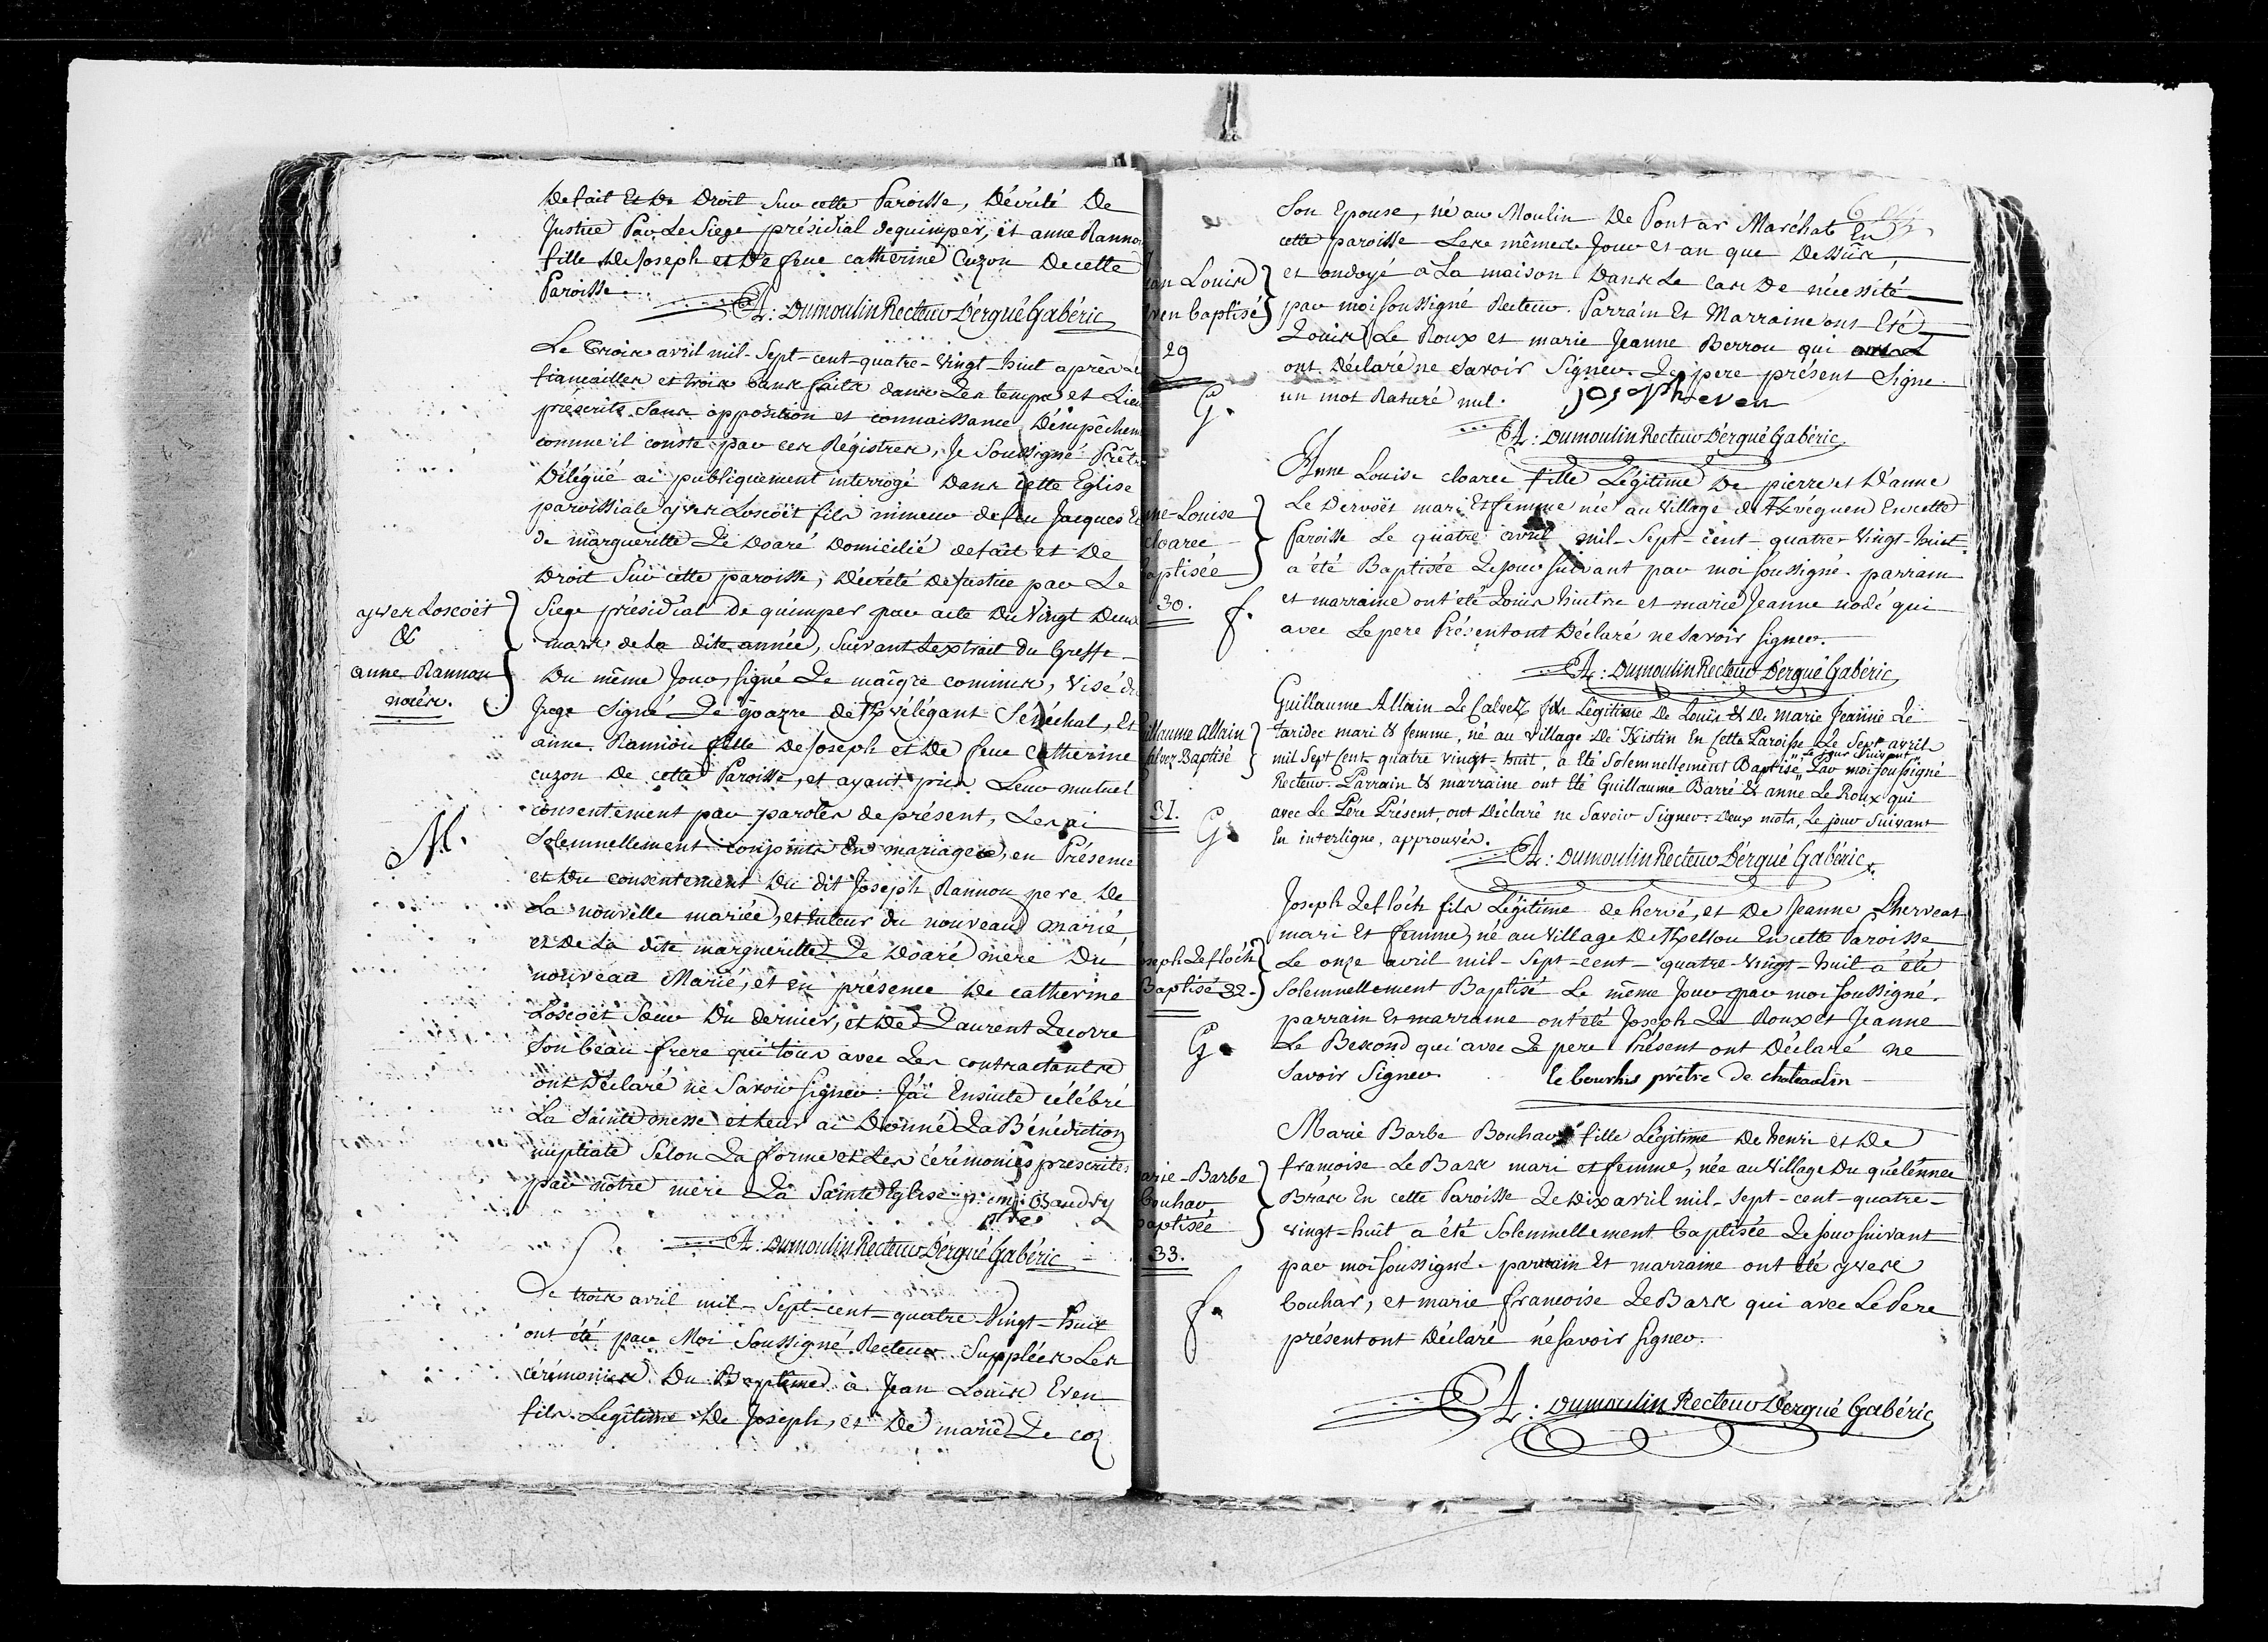 Defait Et De Droit Sur cette Paroisse, Décrété De
Justice Par Le Siege présidial de quimper, et anne Rannou
fille de Joseph et De feue catherine Cuzon De cette
Paroisse.
A: Dumoulin Recteur D'ergué Gabéric
Le Trois avril mil-Sept-cent-quatre-Vingt-huit après Les
fiancailles et trois bans faits dans Les temps et Lieu
préscrits Sans opposition et connaissance D'empêchem
comme il conste par ces Régistres, Je Soussigné Prêtre
Délégué ai publiquement interrogé Dans cette Eglise
paroissiale yves Loscoët fils mineur de feu Jacques Et
de margueritte Le Doaré Domicilié de fait et De
Droit Sur cette paroisse, Décrété de Justice par Le
Siege présidial de quimper par acte Du Vingt Deux
mars de la dite année, Suivant L'extrait du Greffe
Du même Jour, Signé Le maigre commis, Visé du
Juge Signé Le goazre de Kvélégant Sénéchal, Et
anne Rannou fille de Joseph et De feue Catherine
cuzon De cette Paroisse, et ayant pris Leur mutuel
consentement par paroles de présent, Les ai
Solemnellement conjoints En mariage, en Présence
et Du consentement Du dit Joseph Rannou pere De
La nouvelle mariée, et tuteur du nouveau marié,
et De La dite margueritte Le Doaré mere Du
nouveau Marié, et en présence De catherine
Loscoët Sœur Du dernier, et De Laurent Lecorre
Son beau frere qui tous avec Les contractants
ont Déclaré ne Savoir Signer. J'ai Ensuite célébré
La Sainte messe et Leur ai Donné La Bénédiction
nuptiale Selon La forme et Les cérémonies prescrites
par nôtre mere La Sainte Eglise. Baudry
ptre
A: Dumoulin Recteur D'ergué Gabéric
yves Loscoët
&
anne Rannou
mariés.
M.
Le trois avril mil-Sept-cent-quatre Vingt-huit
ont été par Moi Soussigné Recteur Suppléés Les
cérémonies Du Baptême à Jean Louis Even
fils Legitime De Joseph, et De marie Le coz
Son Epouse, né au Moulin De Pont ar Marc'hat En
cette paroisse Les mêmes Jour et an que Dessus,
et ondoyé à La maison Dans Le Cas De nécessité
par moi Soussigné Recteur. Parrain Et Marraine ont Eté
Louis Le Roux et marie Jeanne Berrou qui
ont Déclaré ne Savoir Signer. Le pere présent Signe.
un mot Raturé nul. joseph even
A: Dumoulin Recteur D'ergué Gabéric
an Louis
ven baptisé
29
G.
Anne Louise cloarec fille Légitime De pierre et D'anne
Le Dervoët mari Et femme née au Village de Kvéguen En cette
Paroisse Le quatre avril mil-Sept-cent-quatre-Vingt-huit
a été Baptisée Le jour Suivant par moi Soussigné. parrain
et marraine ont été Louis huitre et marie Jeanne nodé qui
avec Le pere Présent ont Déclaré ne Savoir Signer.
A: Dumoulin Recteur D'ergué Gabéric
ne-Louise
cloarec
aptisée
30.
f.
Guillaume Allain Le Calvez fils Légitime De Louis & De Marie Jeanne Le
Faridec mari & femme, né au Village De Kistin En Cette Paroisse Le Sept avril
mil Sept Cent quatre vingt-huit, a Eté Solemnellement Baptisé "Le jour Suivant" Par moi Soussigné
Recteur. Parrain & marraine ont Eté Guillaume Barré & anne Le Roux qui
avec Le Pére Présent, ont Déclaré ne Savoir Signer. Deux mots, Le jour Suivant
En interligne, approuvés.
A: Dumoulin Recteur D'ergué Gabéric
illaume Allain
alvez Baptisé
31.
G.
Joseph Le flôch fils Légitime de hervé, et De Jeanne Lherveat
mari Et femme, né au Village De Kellou En cette Paroisse
Le onze avril mil-Sept-cent-quatre-Vingt-huit a été
Solemnellement Baptisé Le même Jour par moi Soussigné.
parrain Et marraine ont été Joseph Le Roux et Jeanne
Le Bescond qui avec Le pere Présent ont Déclaré ne
Savoir Signer. le bourhis prêtre de chateaulin
oseph Le flôch
Baptisé 32.
G.
Marie Barbe Bouhar fille Légitime De henri et De
francoise Le Bars mari et femme, née au Village Du quélennec
Bras En cette Paroisse Le Dix avril mil-Sept-cent-quatre-
vingt-huit a été Solemnellement baptisée Le jour Suivant
par moi Soussigné. parrain Et marraine ont été yves
bouhar, et marie francoise Le Bars qui avec Le Pere
présent ont Déclaré ne Savoir Signer.
A: Dumoulin Recteur D'ergué Gabéric
arie-Barbe
bouhar
aptisée
33.
f.